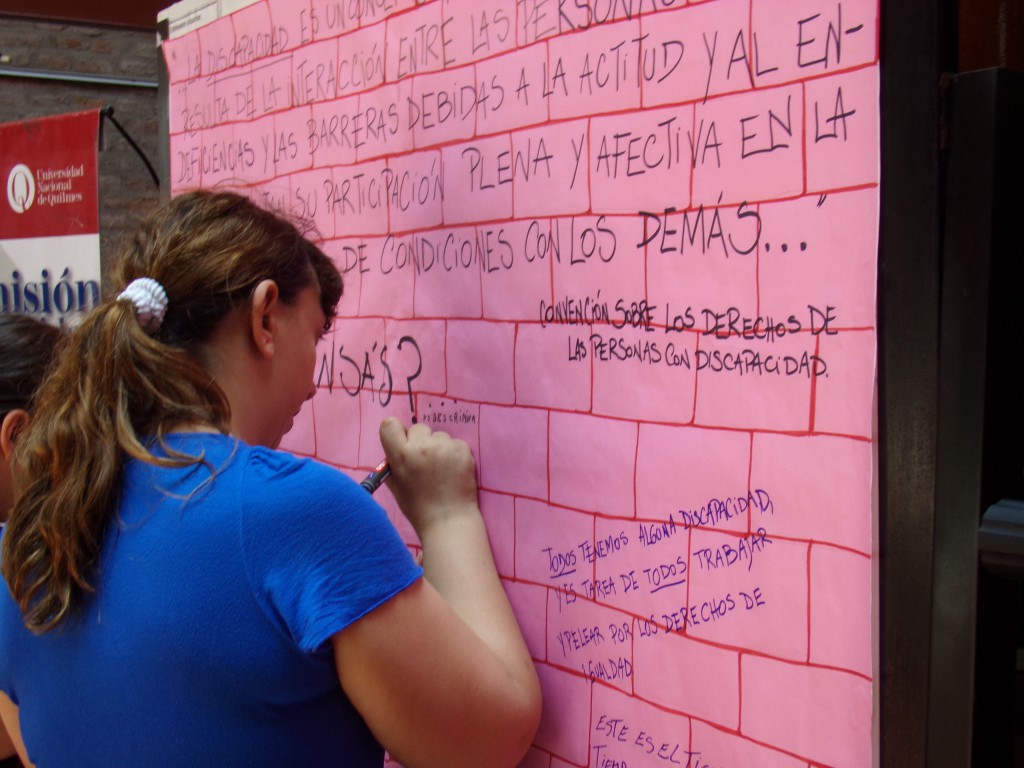 LA DISCAPACIDAD ES UN CONCEP
RESULTA DE LA INTERACCIÓN ENTRE LAS PERSONAS
DEFICIENCIAS Y LAS BARRERAS DEBIDAS A LA ACTITUD Y AL EN-
SU PARTICIPACIÓN PLENA Y AFECTIVA EN LA
DE CONDICIONES CON LOS DEMÁS...
CONVENCIÓN SOBRE LOS DERECHOS DE
LAS PERSONAS CON DISCAPACIDAD.
NSÁS?
TODOS TENEMOS ALGUNA DISCAPACIDAD,
Y ES TAREA DE TODOS TRABAJAR
Y PELEAR POR LOS DERECHOS DE
IGUALDAD
ESTE ES EL
Q
Universidad
Nacional
de Quilmes
misión